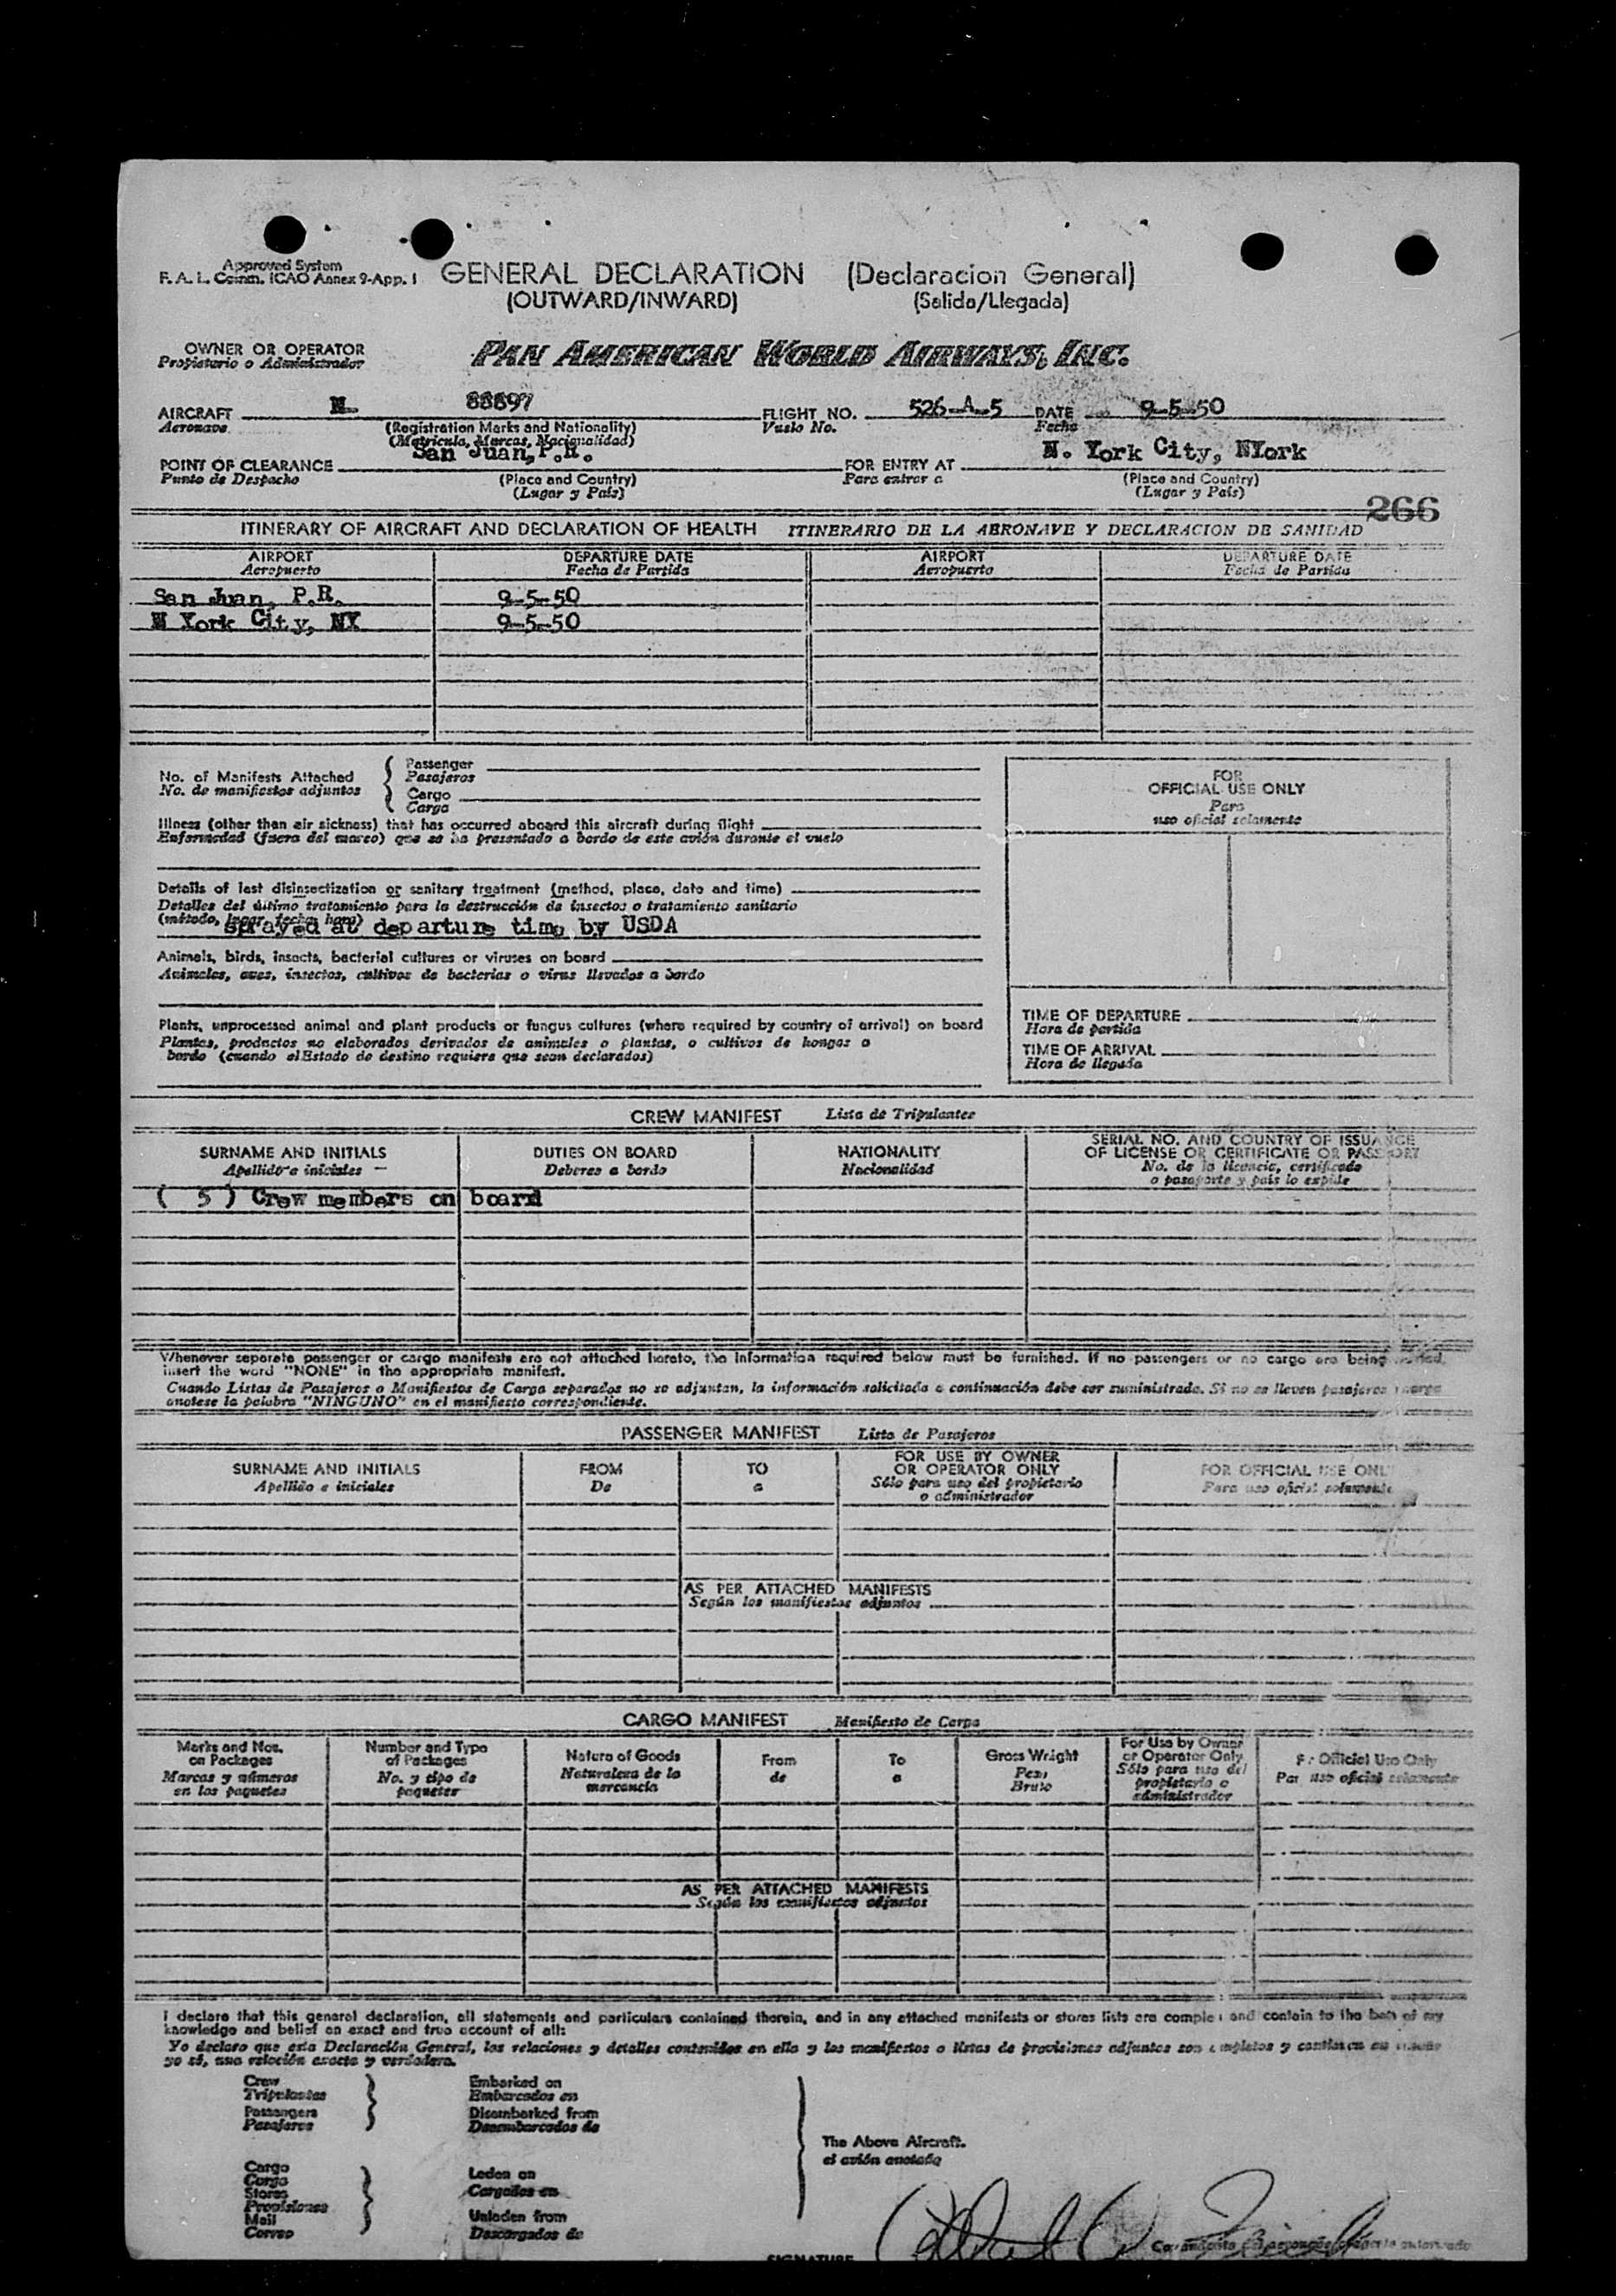 Approved System
F. A. L. Comm. ICAO Annex 9-App. 1
GENERAL DECLARATION (Declaracion General)
(OUTWARD/INWARD) (Salida/Llegada)
OWNER OR OPERATOR PAN AMERICAN WORLD AIRWAYS, INC.
Propietario o Administrador
AIRCRAFT N- 88897 FLIGHT NO. 526-A-5 DATE 9-5-50
Aeronave (Registration Marks and Nationality) Vuelo No. Fecha
(Matricula, Marcas, Nacionalidad)
San Juan, P.R. N. York City, NYork
POINT OF CLEARANCE FOR ENTRY AT
Punto de Despacho (Place and Country) Para entrar a (Place and Country)
(Lugar y País) (Lugar y País)
266
ITINERARY OF AIRCRAFT AND DECLARATION OF HEALTH ITINERARIO DE LA AERONAVE Y DECLARACION DE SANIDAD
AIRPORT DEPARTURE DATE AIRPORT DEPARTURE DATE
Aeropuerto Fecha de Partida Aeropuerto Fecha de Partida
San Juan, P.R. 9-5-50
N York City, NY 9-5-50
No. of Manifests Attached Passenger
No. de manifiestos adjuntos Pasajeros
Cargo
Carga
FOR
OFFICIAL USE ONLY
Para
uso oficial solamente
Illness (other than air sickness) that has occurred aboard this aircraft during flight
Enfermedad (fuera del mareo) que se ha presentado a bordo de este avión durante el vuelo
Details of last disinsectization or sanitary treatment (method, place, date and time)
Detalles del último tratamiento para la destrucción de insectos o tratamiento sanitario
(método, lugar, fecha, hora)
sprayed at departure time by USDA
Animals, birds, insects, bacterial cultures or viruses on board
Animales, aves, insectos, cultivos de bacterias o virus llevados a bordo
Plants, unprocessed animal and plant products or fungus cultures (where required by country of arrival) on board
Plantas, productos no elaborados derivados de animales o plantas, o cultivos de hongos a
bordo (cuando el Estado de destino requiera que sean declarados)
TIME OF DEPARTURE
Hora de partida
TIME OF ARRIVAL
Hora de llegada
CREW MANIFEST Lista de Tripulantes
SURNAME AND INITIALS DUTIES ON BOARD NATIONALITY SERIAL NO. AND COUNTRY OF ISSUANCE
OF LICENSE OR CERTIFICATE OR PASSPORT
Apellido e iniciales Deberes a bordo Nacionalidad No. de la licencia, certificado
o pasaporte y país lo expide
( 5 ) Crew members on board
Whenever separate passenger or cargo manifests are not attached hereto, the information required below must be furnished. If no passengers or no cargo are being
insert the word "NONE" in the appropriate manifest.
Cuando Listas de Pasajeros o Manifiestos de Carga separados no se adjuntan, la información solicitada a continuación debe ser suministrada. Si no se lleven pasajeros carga
anotese la palabra "NINGUNO" en el manifiesto correspondiente.
PASSENGER MANIFEST Lista de Pasajeros
SURNAME AND INITIALS FROM TO FOR USE BY OWNER
OR OPERATOR ONLY FOR OFFICIAL USE ONL
Apellido e iniciales De a Sólo para uso del propietario
o administrador Para uso oficial solamente
AS PER ATTACHED MANIFESTS
Según los manifiestos adjuntos
CARGO MANIFEST Manifiesto de Carga
Marks and Nos.
on Packages
Marcas y números
en los paquetes
Number and Type
of Packages
No. y tipo de
paquetes
Nature of Goods
Naturaleza de la
mercancía
From
de
To
a
Gross Weight
Peso
Bruto
For Use by Owner
or Operator Only
Sólo para uso del
propietario o
administrador
F r Official Use Only
Par uso oficial solamente
AS PER ATTACHED MANIFESTS
Según los manifiestos adjuntos
I declare that this general declaration, all statements and particulars contained therein, and in any attached manifests or stores lists are comple and contain to the best of my
knowledge and belief an exact and true account of all:
Yo declaro que esta Declaración General, las relaciones y detalles contenidos en ella y los manifiestos o listas de provisiones adjuntos son completos y contienen
yo sé, una relación exacta y verdadera.
Crew
Tripulantes
Passengers
Pasajeros
Embarked on
Embarcados en
Disembarked from
Desembarcados de
The Above Aircraft.
el avión anotado
Cargo
Carga
Stores
Provisiones
Mail
Correo
Laden on
Cargados en
Unladen from
Descargados de
SIGNATURE